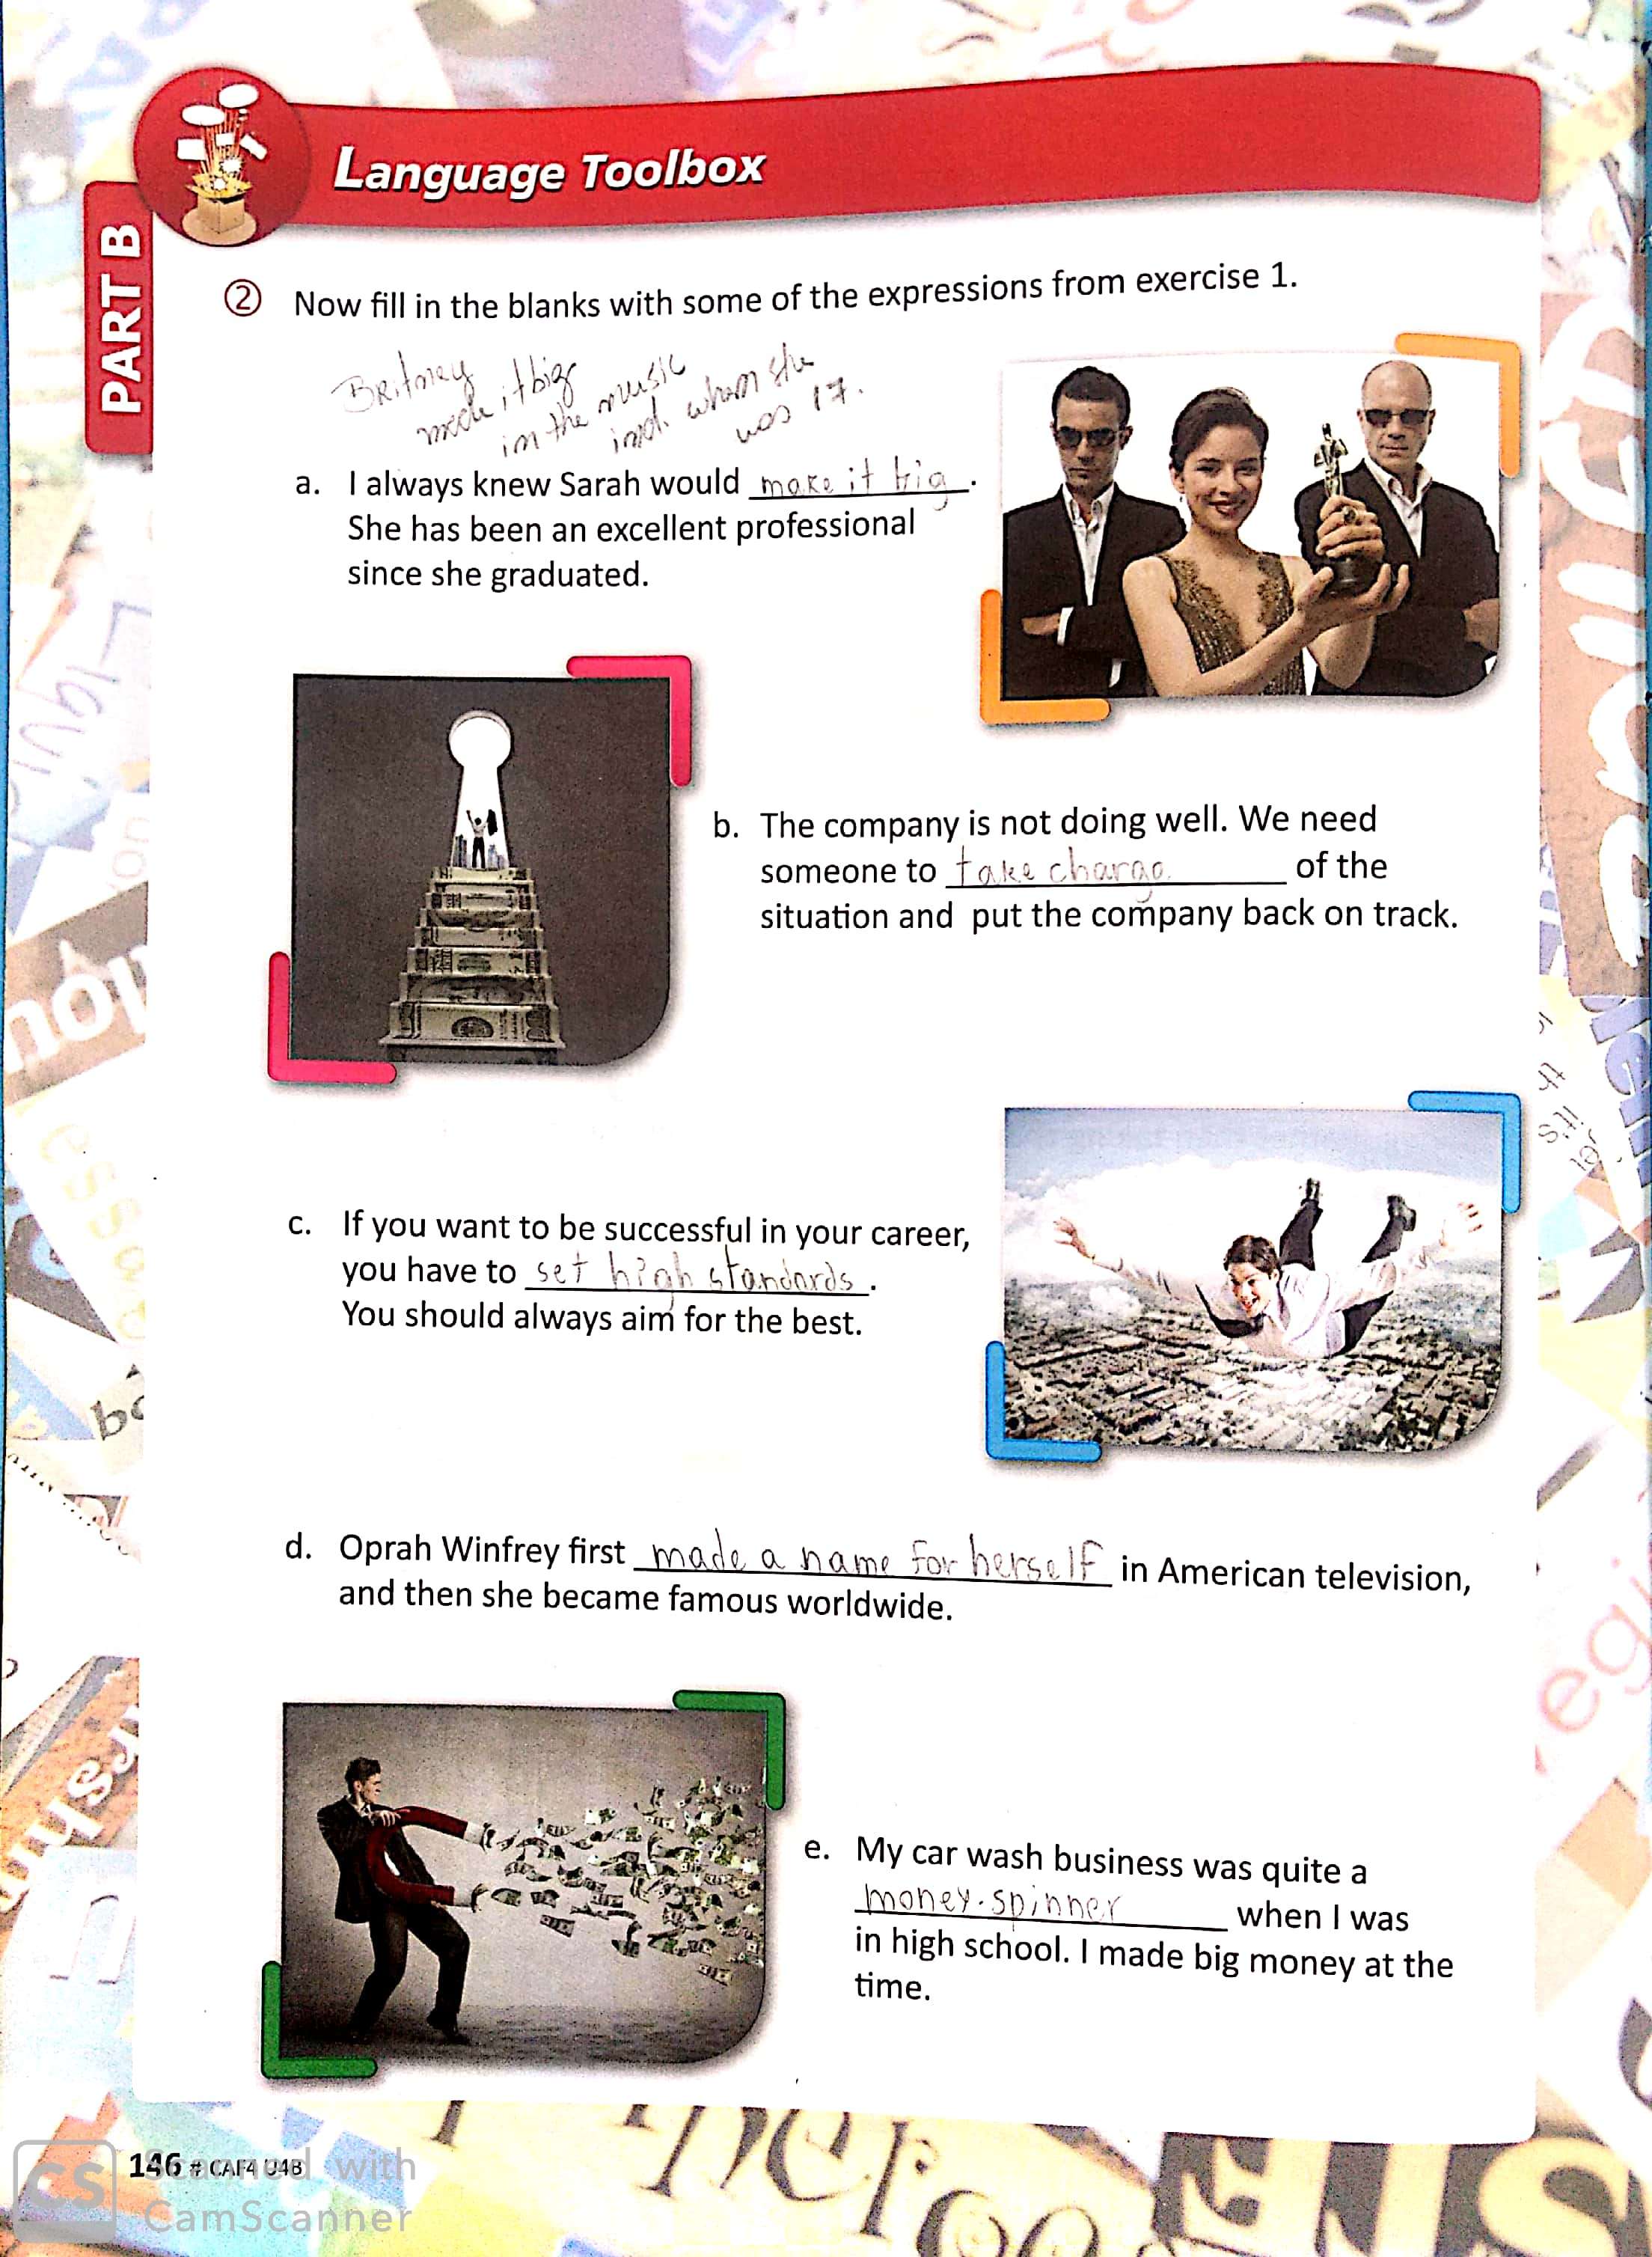 Language Toolbox
PART B
② Now fill in the blanks with some of the expressions from exercise 1.
Britney
made it big
in the music
ind. when she
was 17.
a. I always knew Sarah would make it big.
She has been an excellent professional
since she graduated.
b. The company is not doing well. We need
someone to take charge of the
situation and put the company back on track.
c. If you want to be successful in your career,
you have to set high standards.
You should always aim for the best.
d. Oprah Winfrey first made a name for herself in American television,
and then she became famous worldwide.
e. My car wash business was quite a
money-spinner when I was
in high school. I made big money at the
time.
146 # CAF4 U4B
CS Scanned with
CamScanner